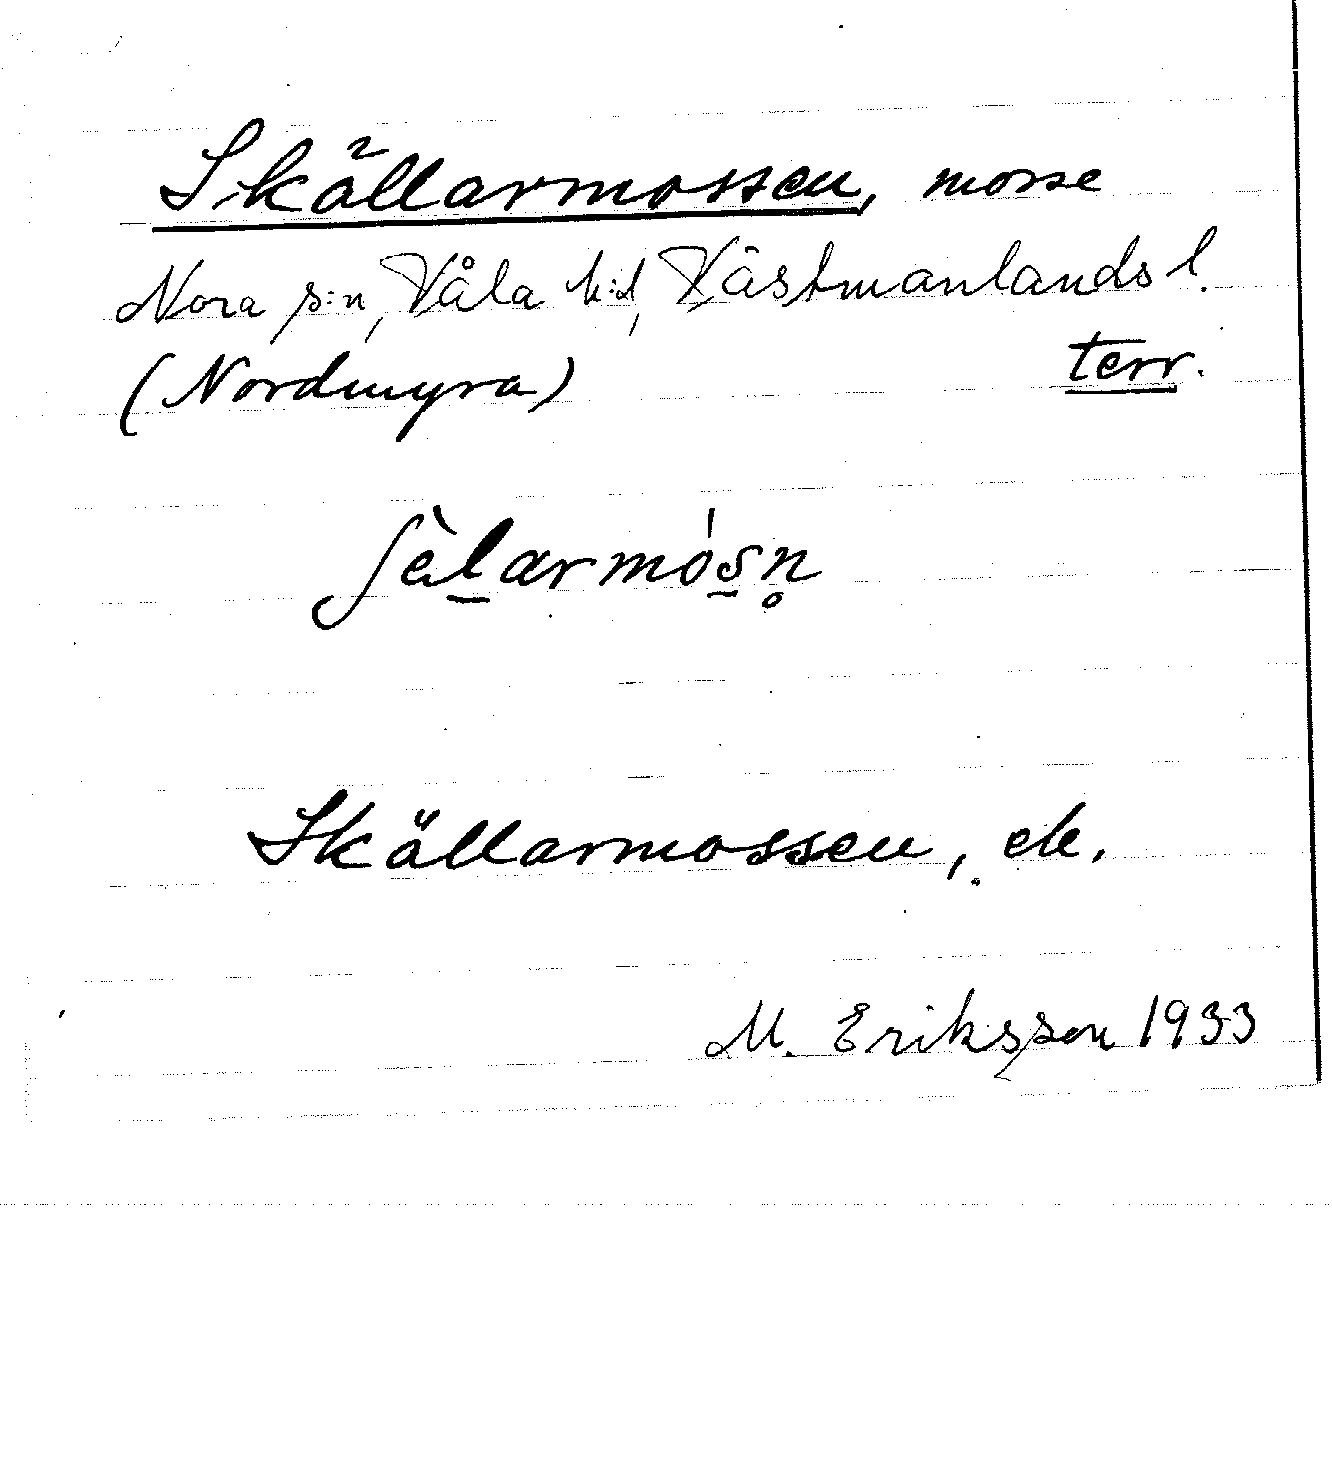 Skällarmossen, mosse
Nora s:n, Våla h:d, Västmanlands l.
(Nordmyra) terr.
ʃèḻarmós̱n̥
Skällarmossen, ek.
M. Eriksson 1933